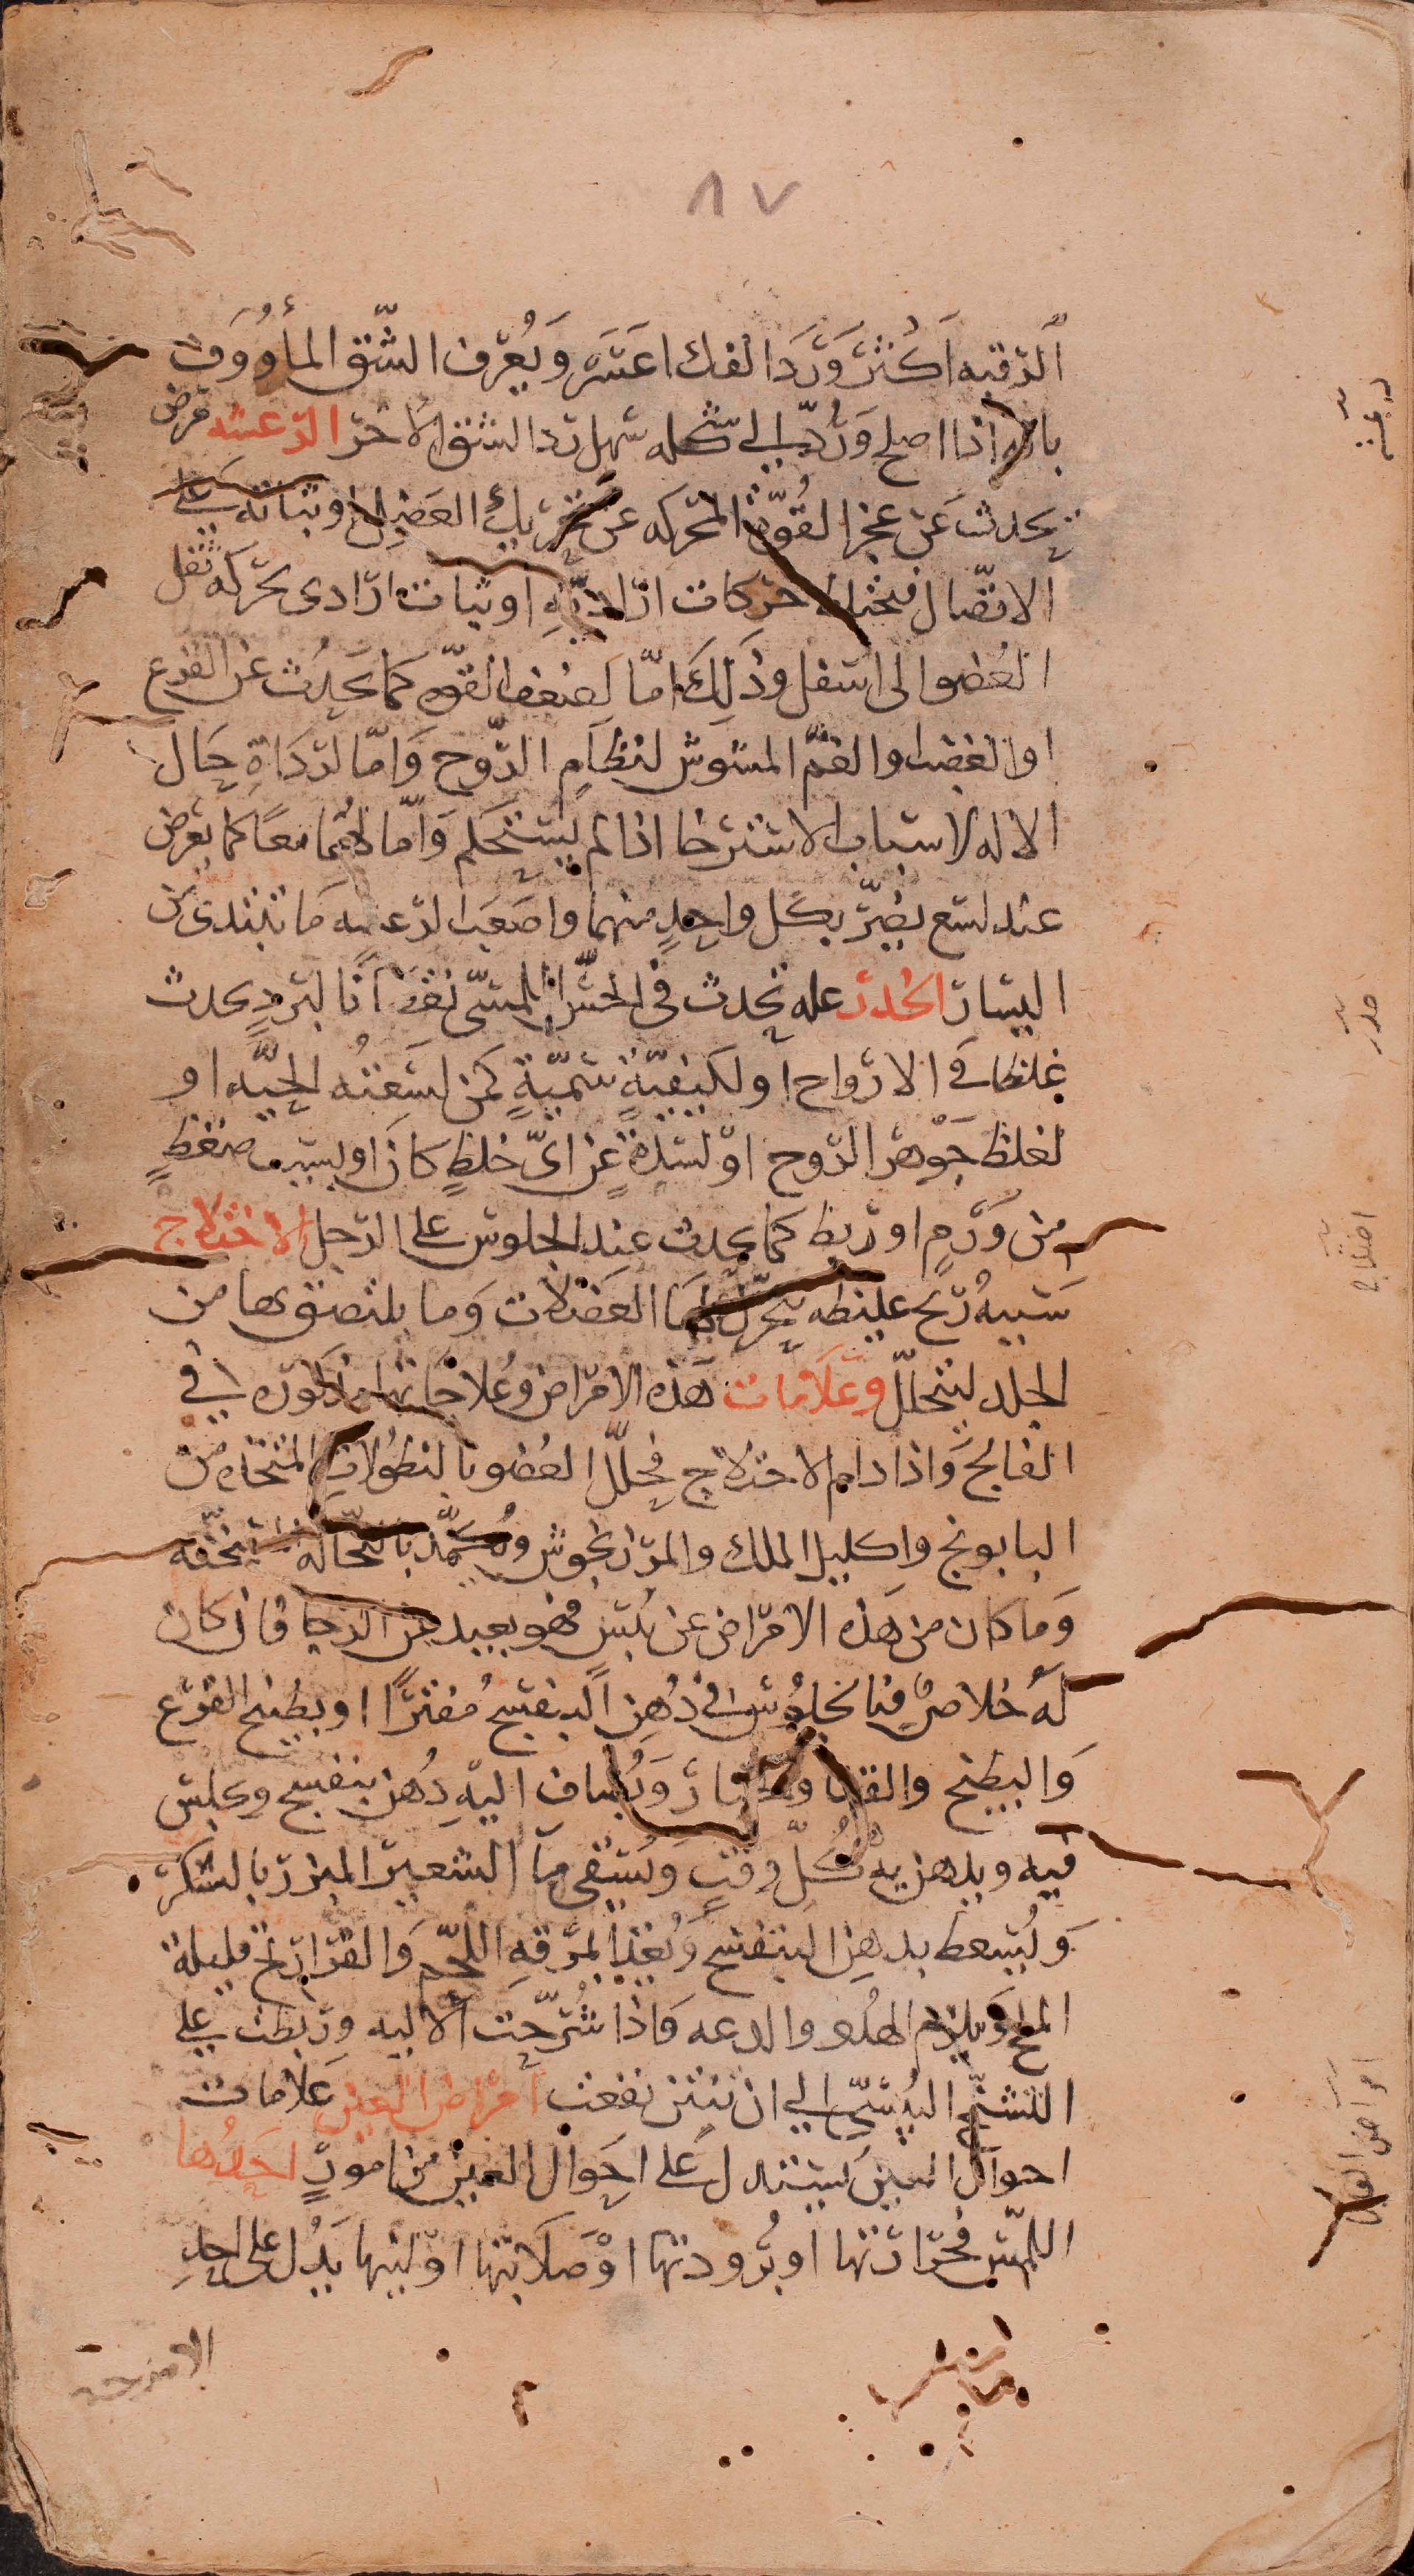 ٨٧
الرقبه اكثر ورد الفك اعسر ويعرف الشق المأووف
بانه اذا اصلح ورد الى شكله سهل رد الشق الاخر الرعشه مرض
يحدث عن عجز القوة المحركه عن تحريك العضل او ثباته على
الاتصال فيختلط حركات اراديه او ثبات ارادى بحركه ثقل
العضو الى اسفل وذلك اما لضعف القوه كما يحدث عن الفزع
او الغضب والغم المشوش لنظام الروح واما لرداة حال
الاله لاسباب الاسترخا اذا لم يستحكم واما لهما معا كما يعرض
عند لسع يضر بكل واحد منهما واصعب الرعشه ما تبتدى من
اليسار الخدر عله تحدث فى الحس اللمسى نقصانا لبرد يحدث
غلظا فى الارواح او لكيفية سمية كمن لسعته الحيه او
لغلظ جوهر الروح او لسدة عن اى خلط كان او بسبب ضغط
من ورم او ربط كما يحدث عند الجلوس على الرجل الاختلاج
سببه ريح غليظه يتحرك لها العضلات وما يلتصق بها من
الجلد ليتحلل وعلامات هذه الامراض وعلاجاتها مذكوره فى
الفالج واذا دام الاختلاج فحلل العضو بالنطولات المتخذه من
البابونج واكليل الملك والمرزنجوش وتكمد بالنخالة مسخنه
وما كان من هذه الامراض عن يبس فهو بعيد عن الرجا فان كان
له خلاص فبالجلوس فى دهن البنفسج مفترا او بطبيخ القرع
والبطيخ والقثا والخيار ويضاف اليه دهن بنفسج ويجلس
فيه ويدهن به كل وقت ويسقى ما الشعير المبرد بالسكر
ويسعط بدهن البنفسج ويغذا بمرقه اللحم والفراريج قليلة
الملح ويلازم الهدو والدعه فاذا شرحت الاليه وربطت على
التشنج اليبسى الى ان تنتن نفعت امراض العين علامات
احوال العين يستدل على احوال العين من امور احدها
اللمس فحرارتها او برودتها او صلابتها او لينها يدل على احد
الامزجه
رعشه
خدر
اختلاج
امراض العين